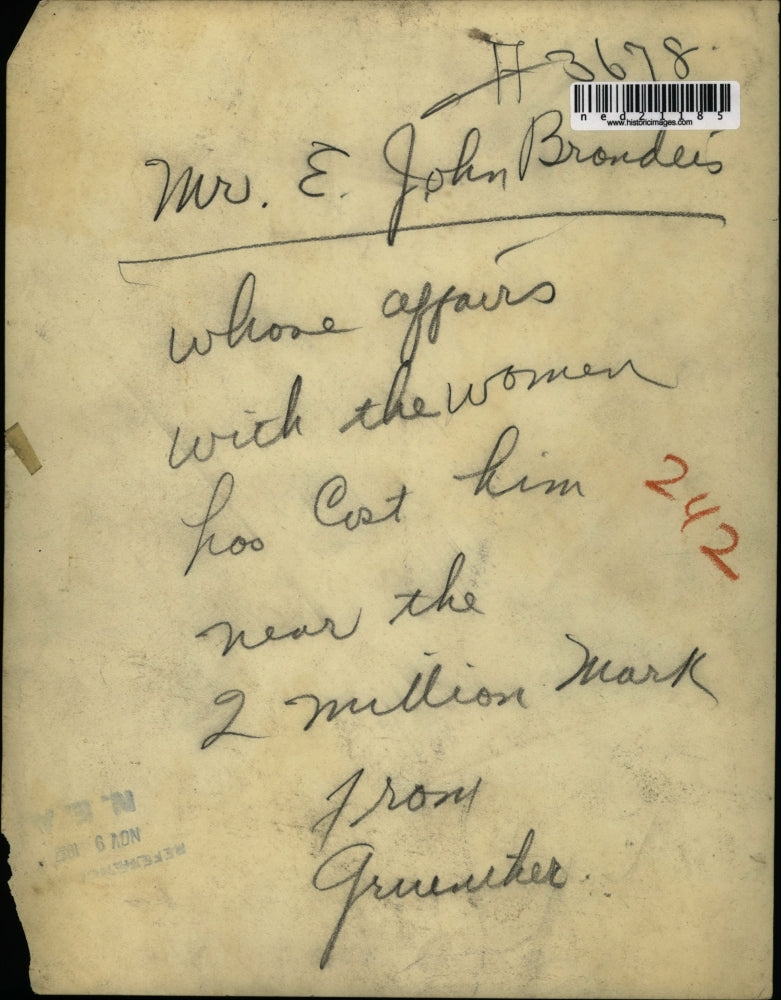 H 3678.
ned21185
www.historicimages.com
Mr. E. John Brandeis
whose affairs
with the women
has Cost him
242
near the
2 million Mark
from
N.E.A.
NOV 9
REFERENCE